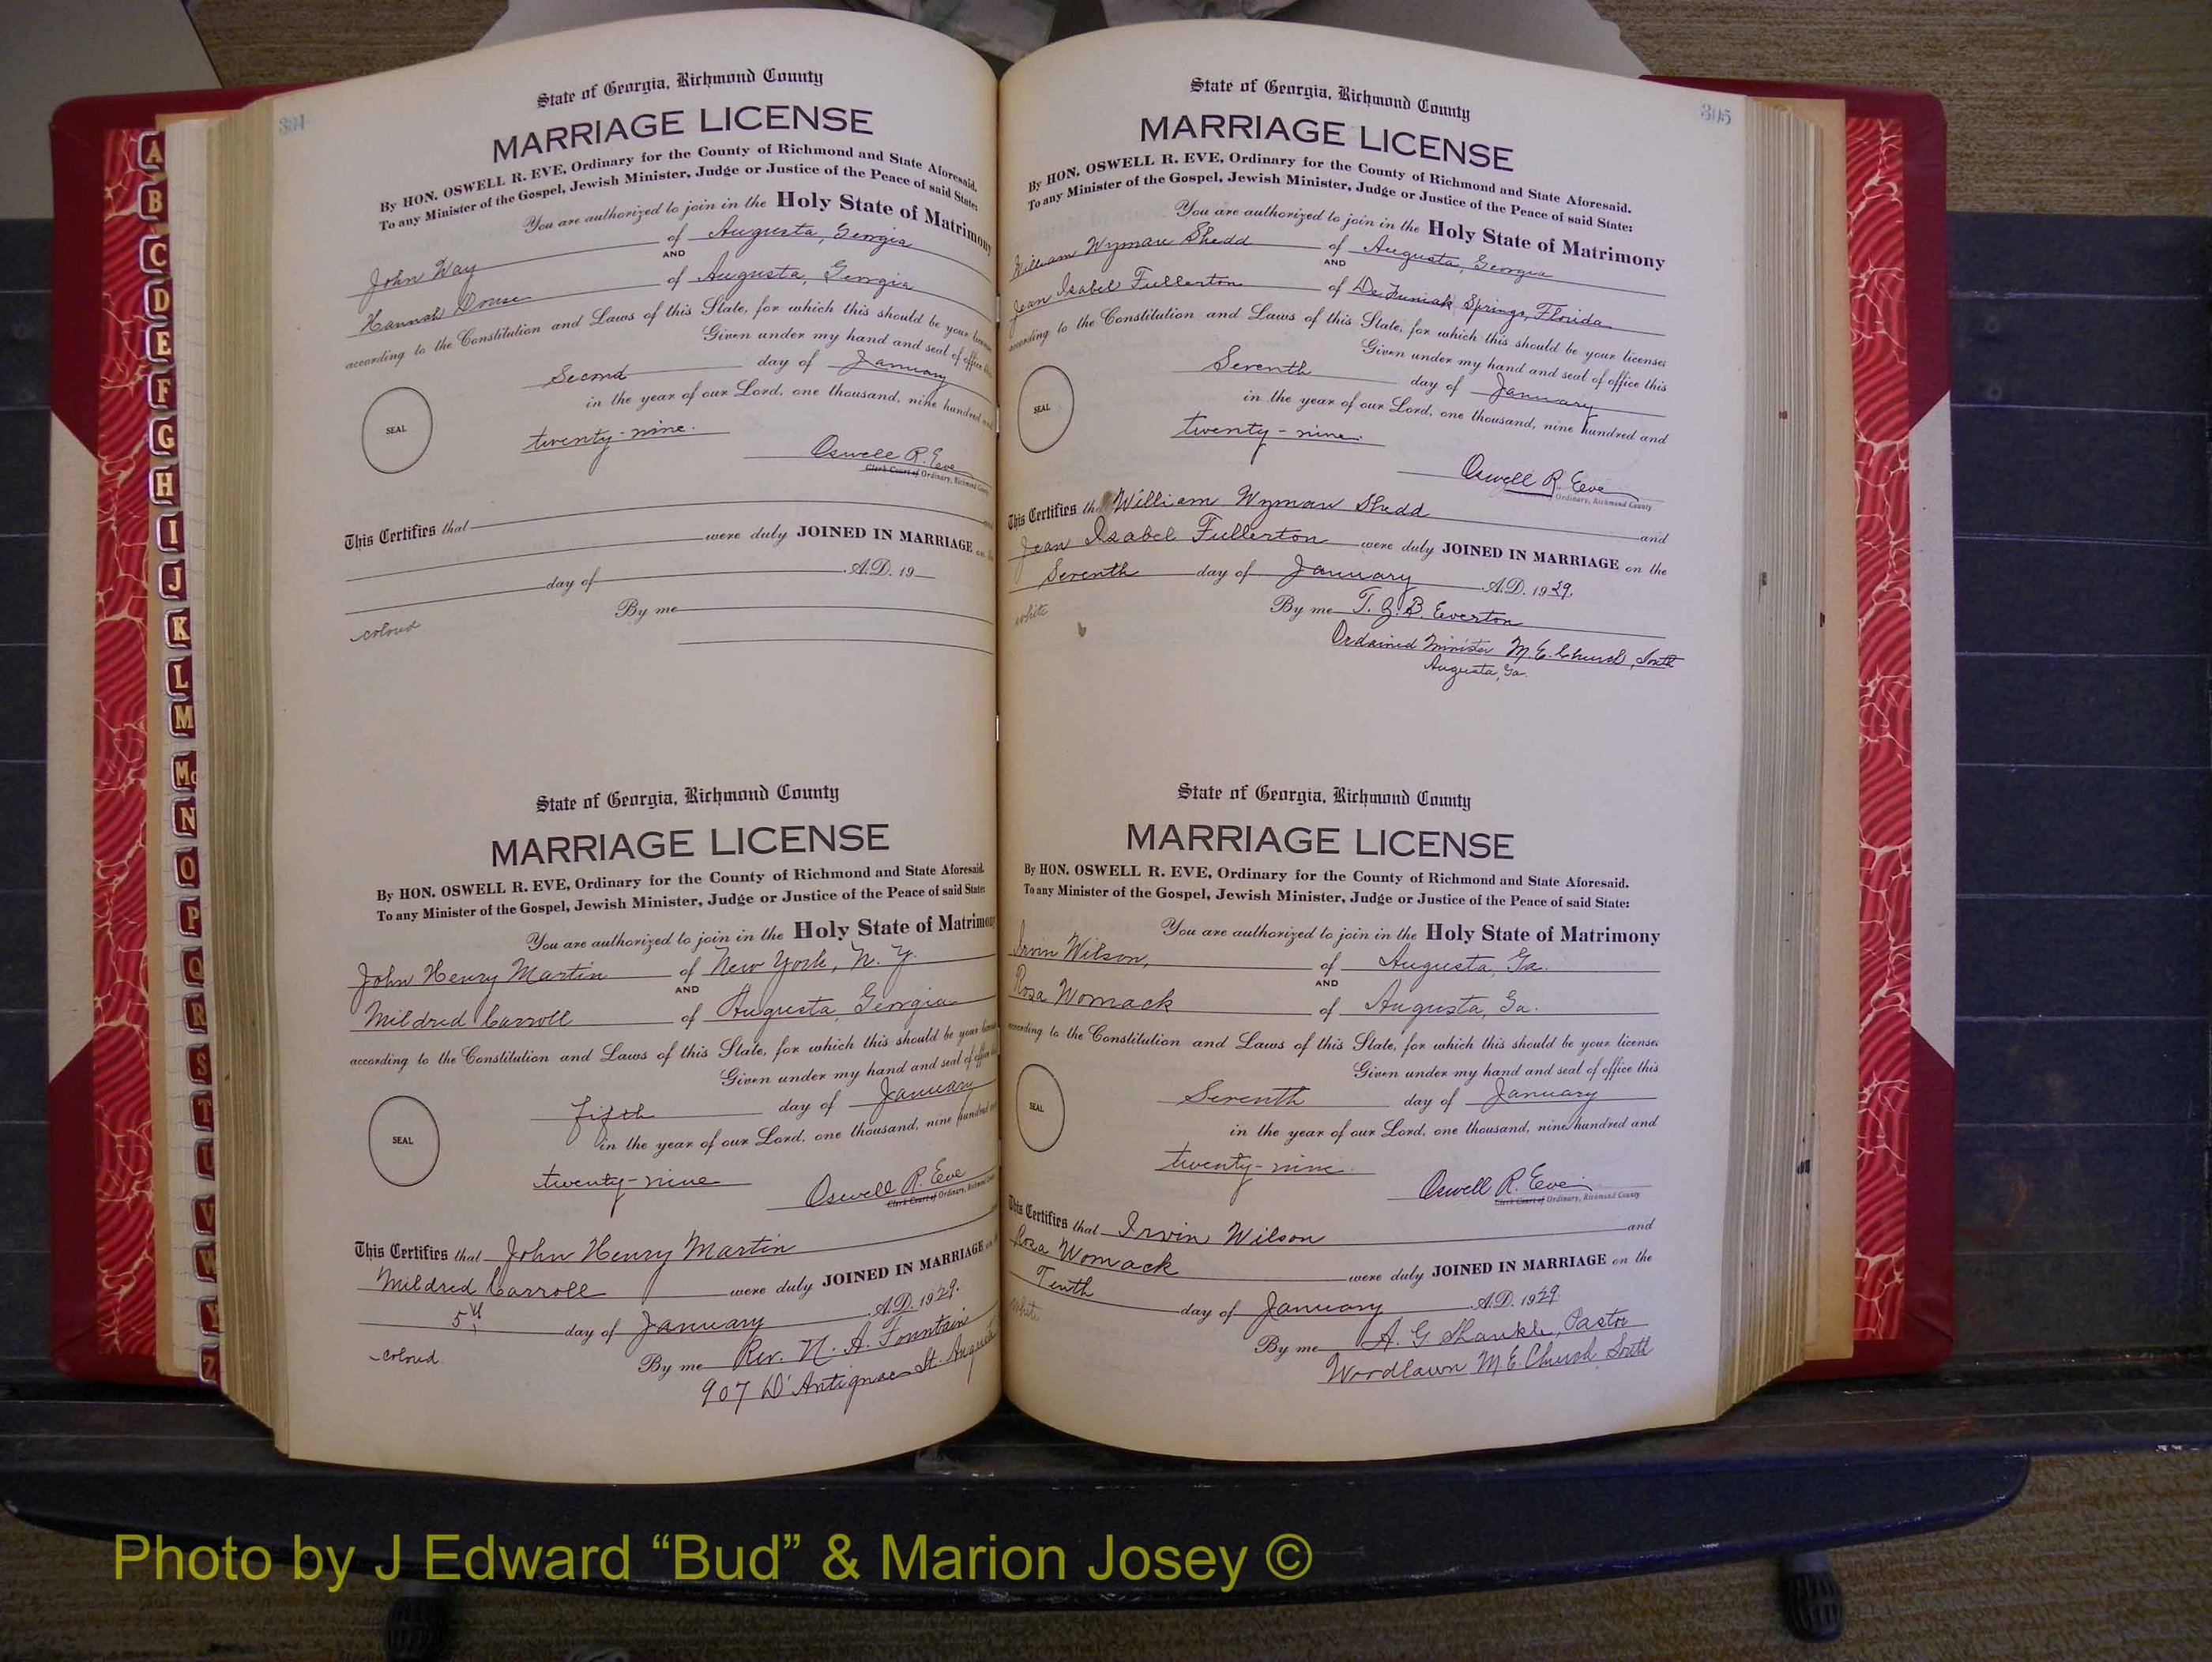 A
B
C
D
E
F
G
H
I
J
K
L
M
Mc
N
O
P
Q
R
S
T
U
V
W
Y
Z
304
State of Georgia, Richmond County
MARRIAGE LICENSE
By HON. OSWELL R. EVE, Ordinary for the County of Richmond and State Aforesaid.
To any Minister of the Gospel, Jewish Minister, Judge or Justice of the Peace of said State:
You are authorized to join in the Holy State of Matrimony
John Way of Augusta, Georgia
AND
Hannah Douse of Augusta, Georgia
according to the Constitution and Laws of this State, for which this should be your
Given under my hand and seal of office this
Second day of January
SEAL
in the year of our Lord, one thousand, nine hundred and
twenty-nine.
Oswell R. Eve
Clerk Court of Ordinary, Richmond County
This Certifies that and
were duly JOINED IN MARRIAGE on the
day of A.D. 19
By me
colored
State of Georgia, Richmond County
MARRIAGE LICENSE
By HON. OSWELL R. EVE, Ordinary for the County of Richmond and State Aforesaid.
To any Minister of the Gospel, Jewish Minister, Judge or Justice of the Peace of said State:
You are authorized to join in the Holy State of Matrimony
John Henry Martin of New York, N. Y.
AND
Mildred Carroll of Augusta, Georgia
according to the Constitution and Laws of this State, for which this should be your
Given under my hand and seal of office this
fifth day of January
SEAL
in the year of our Lord, one thousand, nine hundred and
twenty-nine
Oswell R. Eve
Clerk Court of Ordinary, Richmond
This Certifies that John Henry Martin
Mildred Carroll were duly JOINED IN MARRIAGE on
5th day of January A.D. 1929.
colored
By me Rev. N. A. Fountain
907 D'Antignac St. Augusta
305
State of Georgia, Richmond County
MARRIAGE LICENSE
By HON. OSWELL R. EVE, Ordinary for the County of Richmond and State Aforesaid.
To any Minister of the Gospel, Jewish Minister, Judge or Justice of the Peace of said State:
You are authorized to join in the Holy State of Matrimony
William Wyman Shedd of Augusta, Georgia
AND
Jean Isabel Fullerton of De Funiak Springs, Florida
according to the Constitution and Laws of this State, for which this should be your licenses
Given under my hand and seal of office this
Seventh day of January
SEAL
in the year of our Lord, one thousand, nine hundred and
twenty-nine.
Oswell R. Eve
Ordinary, Richmond County
This Certifies that William Wyman Shedd and
Jean Isabel Fullerton were duly JOINED IN MARRIAGE on the
Seventh day of January A.D. 1929.
white
By me T. G. B. Everton
Ordained Minister M. E. Church, South
Augusta, Ga.
State of Georgia, Richmond County
MARRIAGE LICENSE
By HON. OSWELL R. EVE, Ordinary for the County of Richmond and State Aforesaid.
To any Minister of the Gospel, Jewish Minister, Judge or Justice of the Peace of said State:
You are authorized to join in the Holy State of Matrimony
Irvin Wilson, of Augusta, Ga.
AND
Rosa Womack of Augusta, Ga.
according to the Constitution and Laws of this State, for which this should be your licenses
Given under my hand and seal of office this
Seventh day of January
SEAL
in the year of our Lord, one thousand, nine hundred and
twenty-nine.
Oswell R. Eve
Clerk Court of Ordinary, Richmond County
This Certifies that Irvin Wilson and
Rosa Womack were duly JOINED IN MARRIAGE on the
Tenth day of January A.D. 1929.
white
By me A. G. Shankle, Pastor
Woodlawn M. E. Church South
Photo by J Edward “Bud” & Marion Josey ©